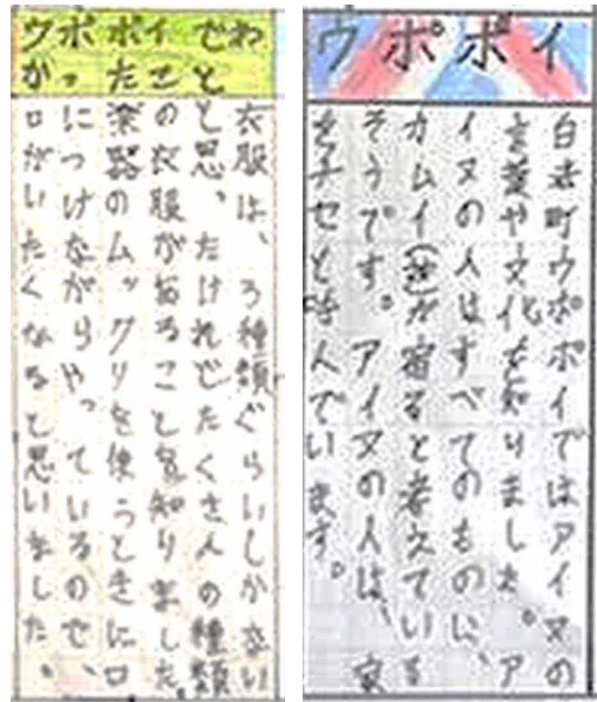 ウポポイ
白老町ウポポイではアイヌの
言葉や文化を知りました。ア
イヌの人はすべてのものに、
カムイ(神)が宿ると考えている
そうです。アイヌの人は、家
をチセと呼んでいます。
ウポポイでわ
かったこと
衣服は、3種類ぐらいしかない
と思ったけれどたくさんの種類
の衣服があることを知りました。
楽器のムックリを使うときに口
につけながらやっているので、
口がいたくなると思いました。